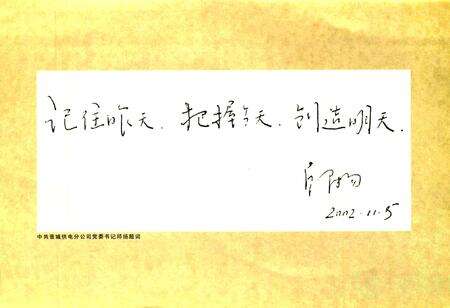 记住昨天.把握今天.创造明天.
师扬
2002.11.5
中共晋城供电分公司党委书记师扬题词